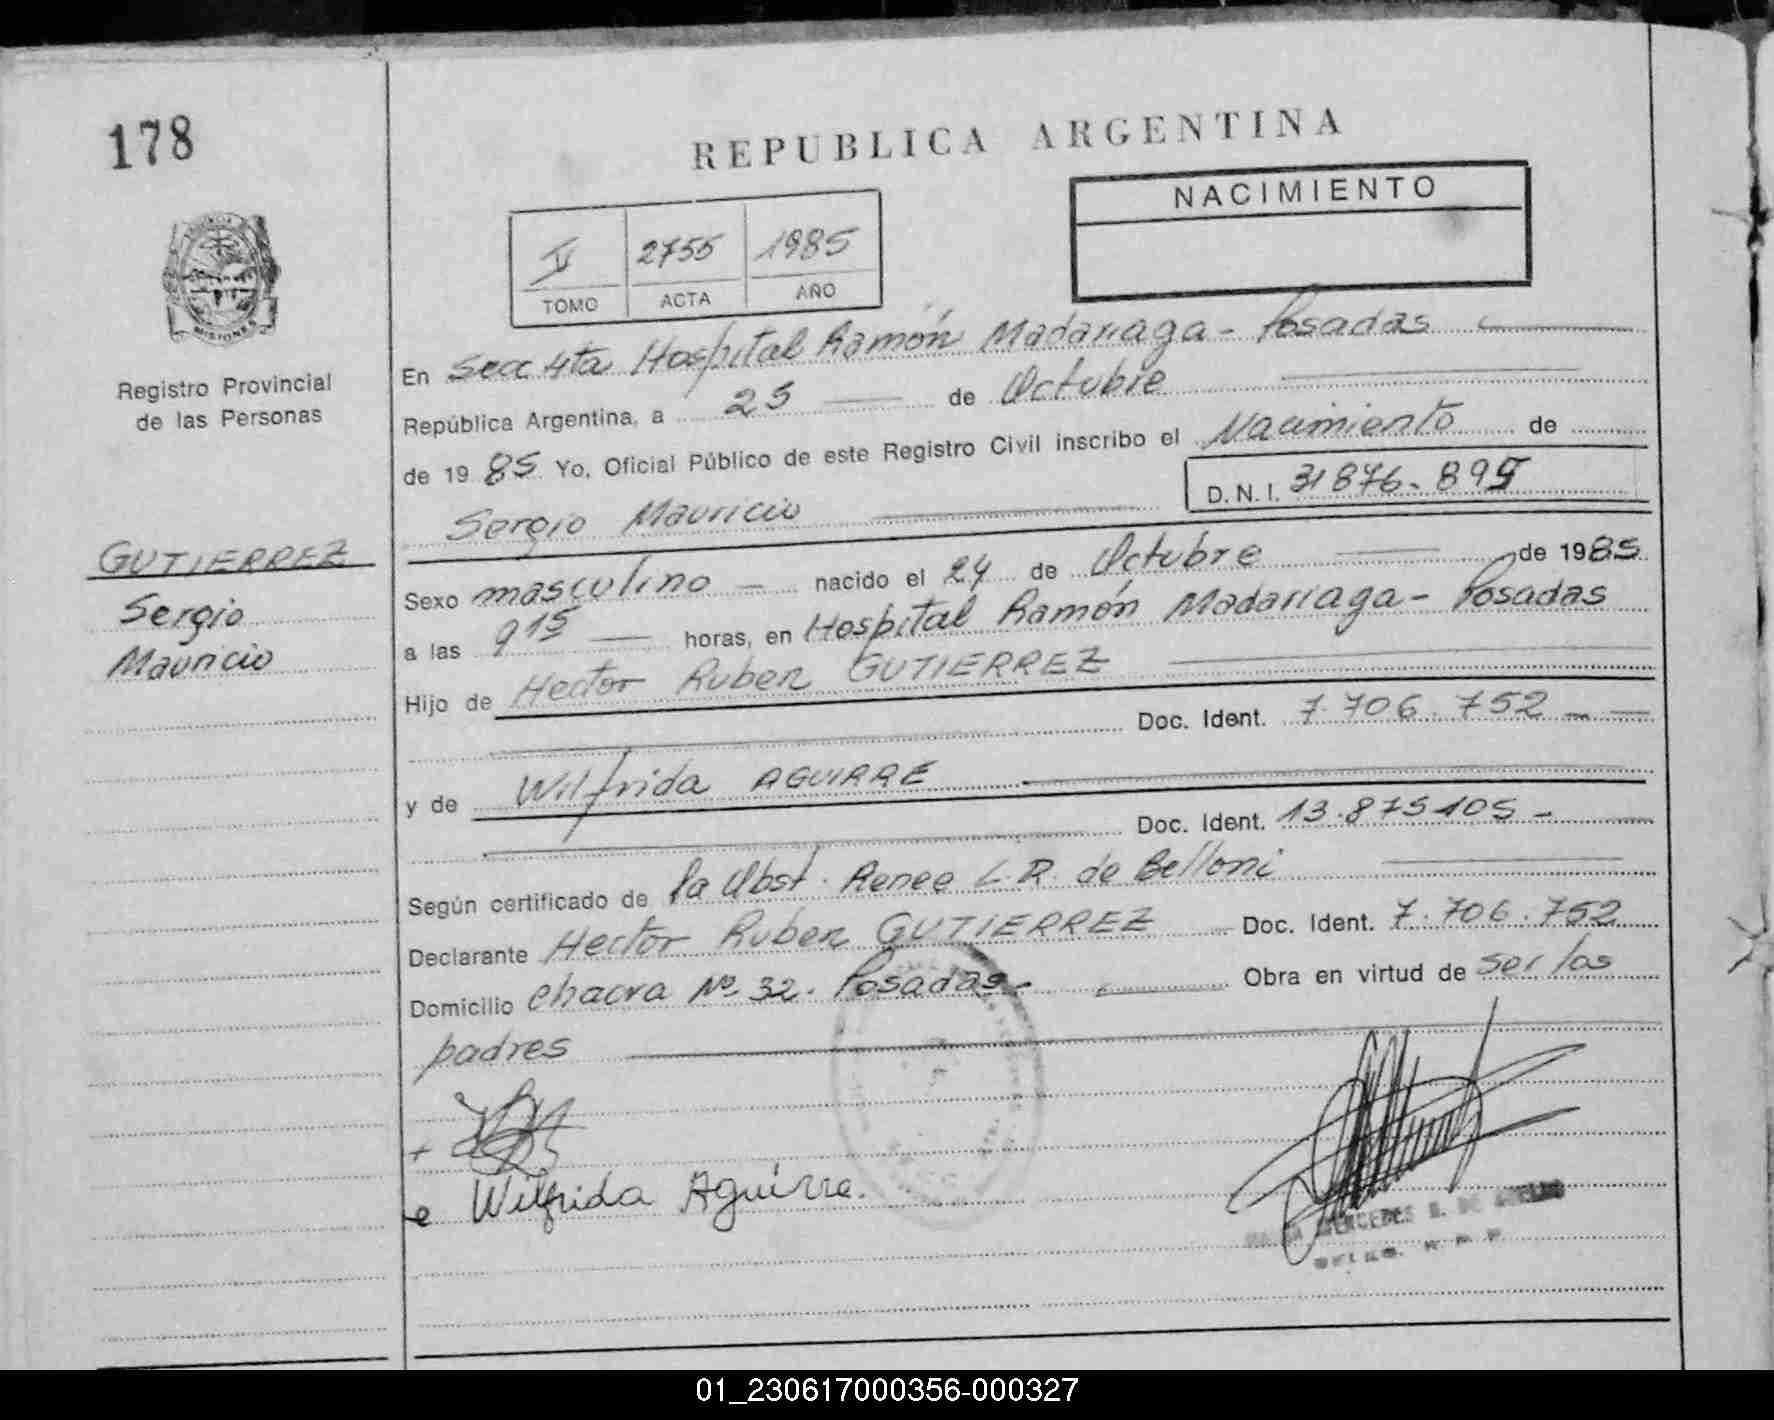 178
REPUBLICA ARGENTINA
NACIMIENTO
V 2755 1985
TOMO ACTA AÑO
MISIONES
Registro Provincial
de las Personas
GUTIERREZ
Sergio
Mauricio
En Secc 4ta Hospital Ramón Madariaga - Posadas
República Argentina, a 25 de Octubre
de 1985 Yo, Oficial Público de este Registro Civil inscribo el Nacimiento de
Sergio Mauricio D.N.I. 31876-895
Sexo masculino — nacido el 24 de Octubre de 1985
a las 9 15 — horas, en Hospital Ramón Madariaga - Posadas
Hijo de Hector Ruben GUTIERREZ
Doc. Ident. 7.706.752 — —
y de Wilfrida AGUIRRE
Doc. Ident. 13.875105 -
Según certificado de la Obst. Renee L.R. de Belloni
Declarante Hector Ruben GUTIERREZ Doc. Ident. 7.706.752
Domicilio Chacra Nº 32. Posadas - Obra en virtud de ser los
padres
Wilfrida Aguirre.
MERCEDES
01_230617000356-000327